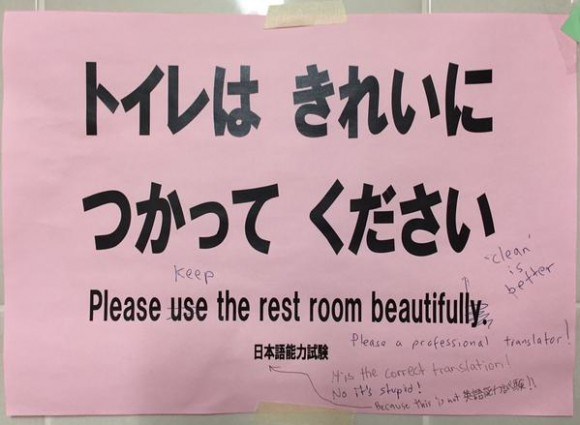 トイレは きれいに
つかって ください
keep
'clean'
is
better
Please use the rest room beautifully.
Please a professional translator!
日本語能力試験
is the correct translation!
No it's stupid!
Because this is not 英語能力試験!!